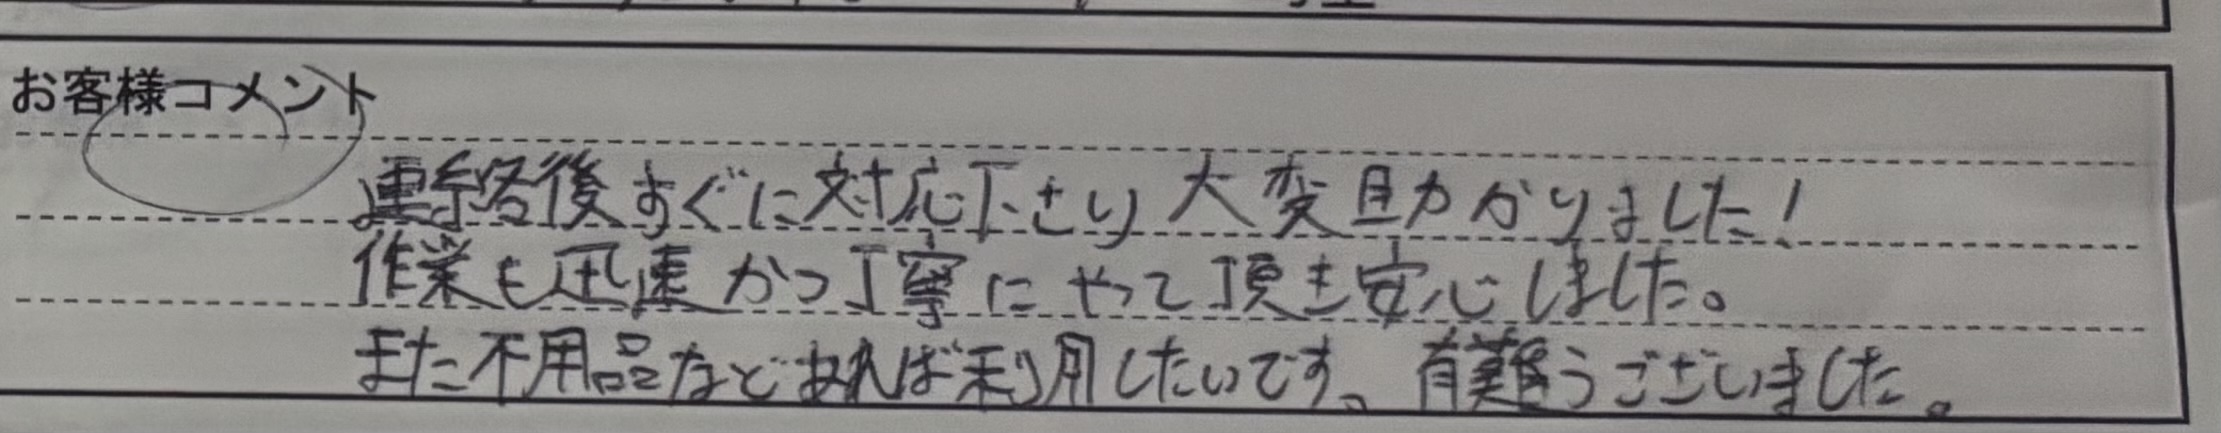 お客様コメント
連絡後すぐに対応下さり大変助かりました!
作業も迅速かつ丁寧にやって頂き安心しました。
また不用品などあれば利用したいです。有難うございました。